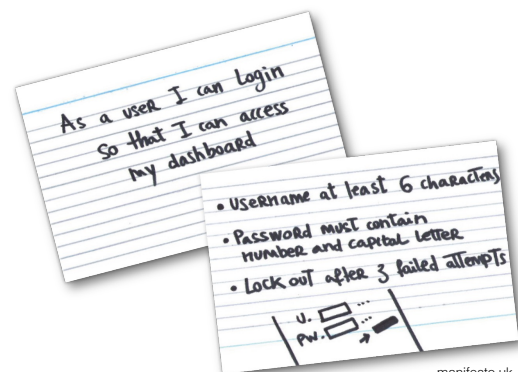 As a user I can Login
so that I can access
my dashboard
• Username at least 6 characters
• Password must contain
number and capital letter
• Lock out after 3 failed attempts
U.
PW.
manifesto.uk